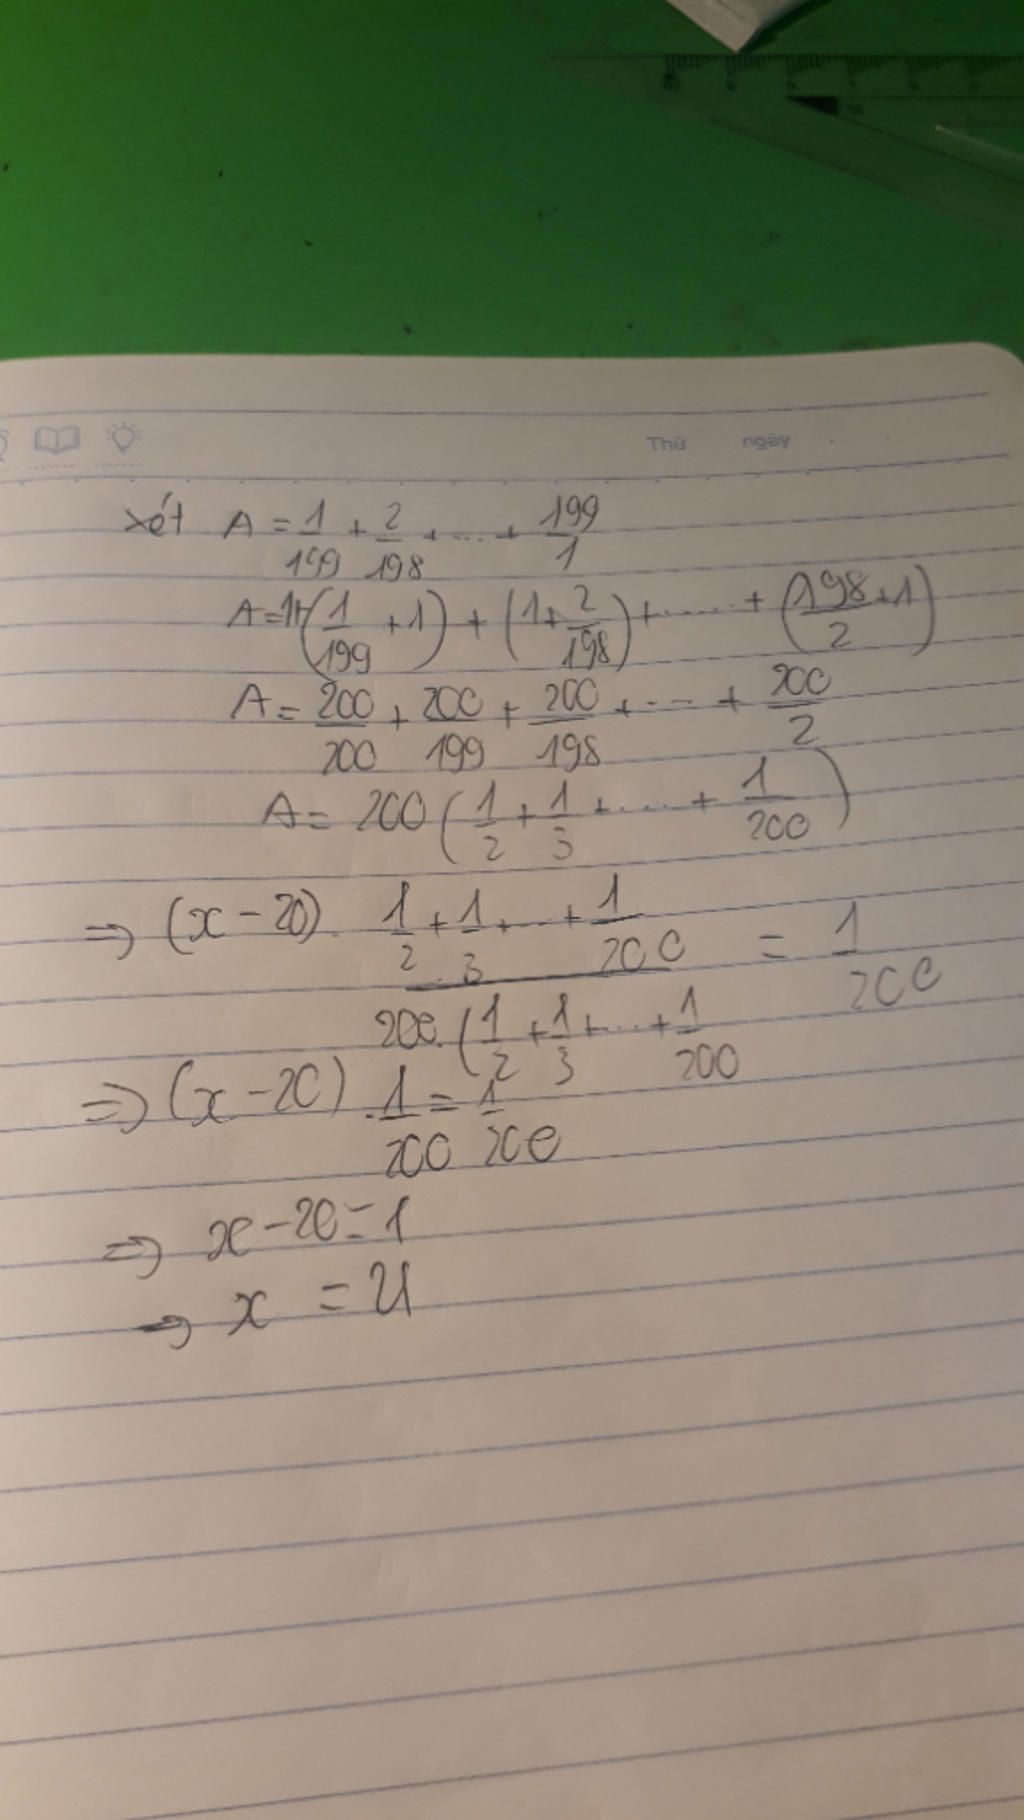 Thứ ngày
xét A = 1/199 + 2/198 + ... + 199/1
A = 1+(1/199 + 1) + (1 + 2/198) + ...... + (198/2 + 1)
A = 200/200 + 200/199 + 200/198 + ... + 200/2
A = 200 (1/2 + 1/3 + .... + 1/200)
=> (x - 20). (1/2 + 1/3 + ... + 1/200)/(200. (1/2 + 1/3 + ... + 1/200) = 1/200
=> (x - 20) . 1/200 = 1/200
=> x - 20 = 1
=> x = 21